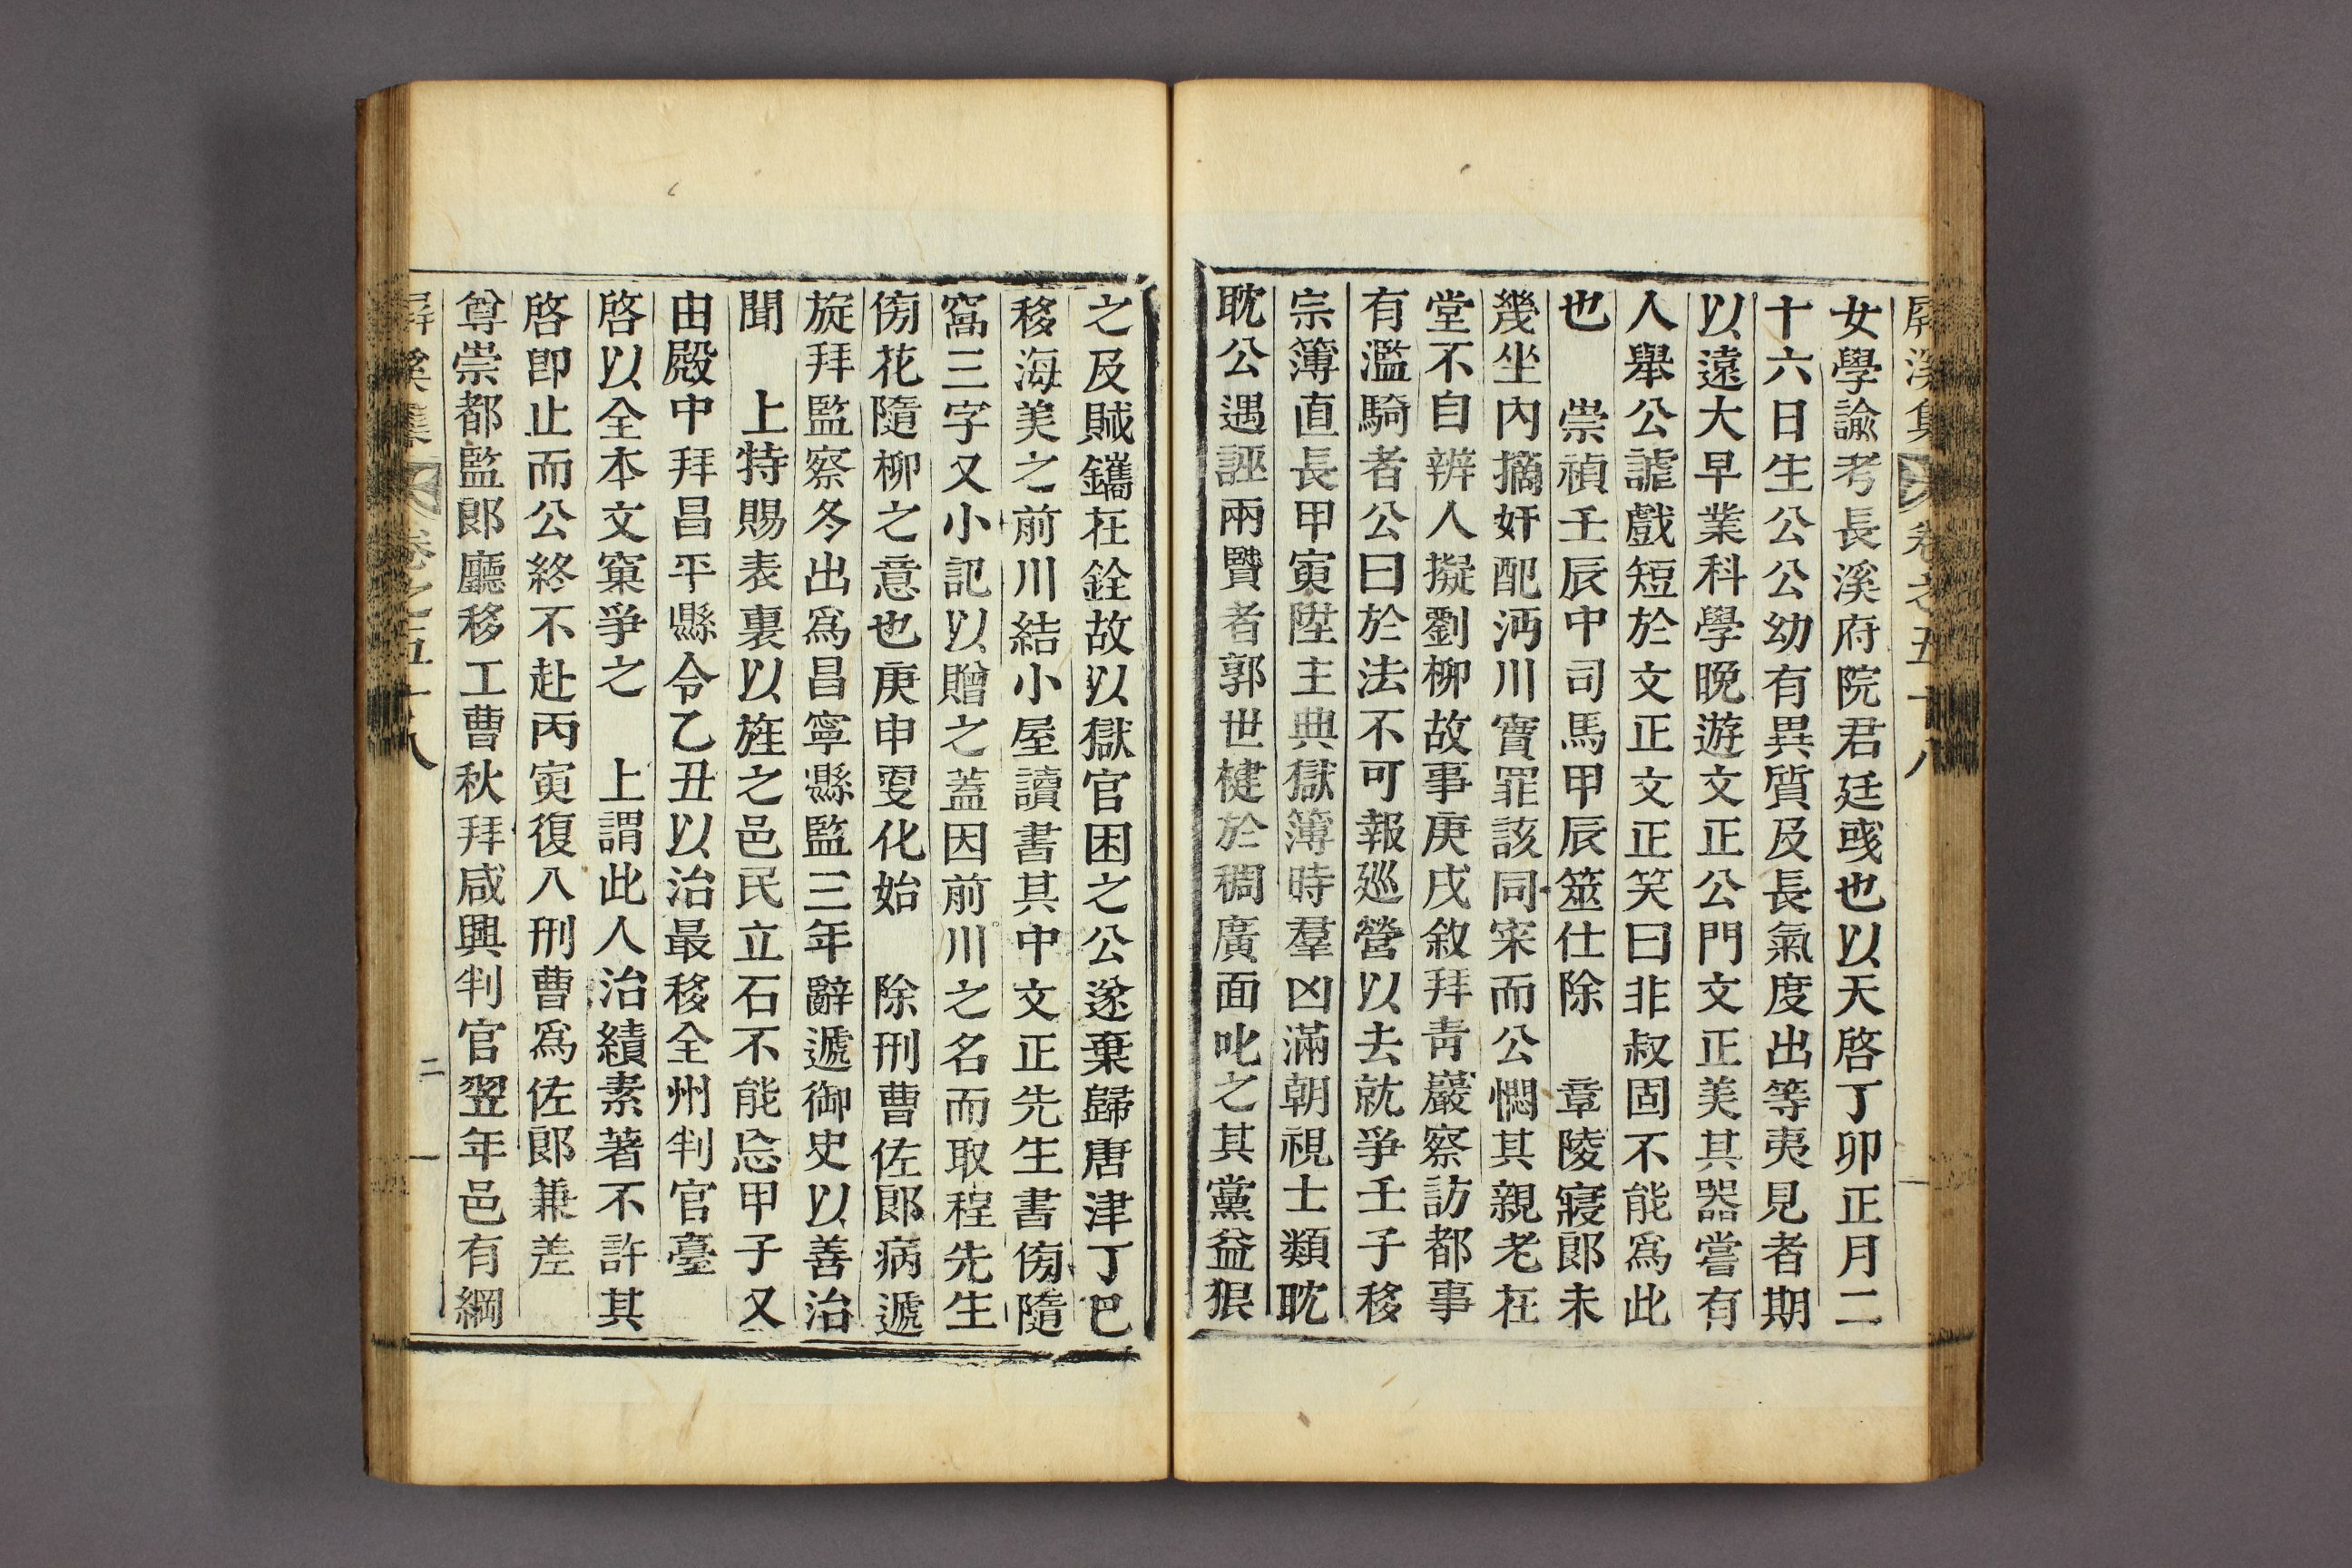 屛溪集 卷之五十八
女學諭考長溪府院君廷彧也以天啓丁卯正月二
十六日生公公幼有異質及長氣度出等夷見者期
以遠大早業科學晩遊文正公門文正美其器嘗有
人舉公謔戲短於文正文正笑曰非叔固不能爲此
也 崇禎壬辰中司馬甲辰筮仕除 章陵寢郎未
幾坐內摘奸配沔川實罪該同寀而公憫其親老在
堂不自辨人擬劉柳故事庚戌敘拜靑巖察訪都事
有濫騎者公曰於法不可報廵營以去就爭壬子移
宗簿直長甲寅陞主典獄簿時羣凶滿朝視士類耽
耽公遇誣兩賢者郭世楗於稠廣面叱之其黨益狠
之及賊鑴在銓故以獄官困之公遂棄歸唐津丁巳
移海美之前川結小屋讀書其中文正先生書傍隨
窩三字又小記以贈之蓋因前川之名而取程先生
傍花隨柳之意也庚申更化始 除刑曹佐郎病遞
旋拜監察冬出爲昌寧縣監三年辭遞御史以善治
聞 上特賜表裏以旌之邑民立石不能忘甲子又
由殿中拜昌平縣令乙丑以治最移全州判官臺
啓以全本文窠爭之 上謂此人治績素著不許其
啓卽止而公終不赴丙寅復入刑曹爲佐郎兼差
尊崇都監郎廳移工曹秋拜咸興判官翌年邑有綱
屛溪集 卷之五十八 二